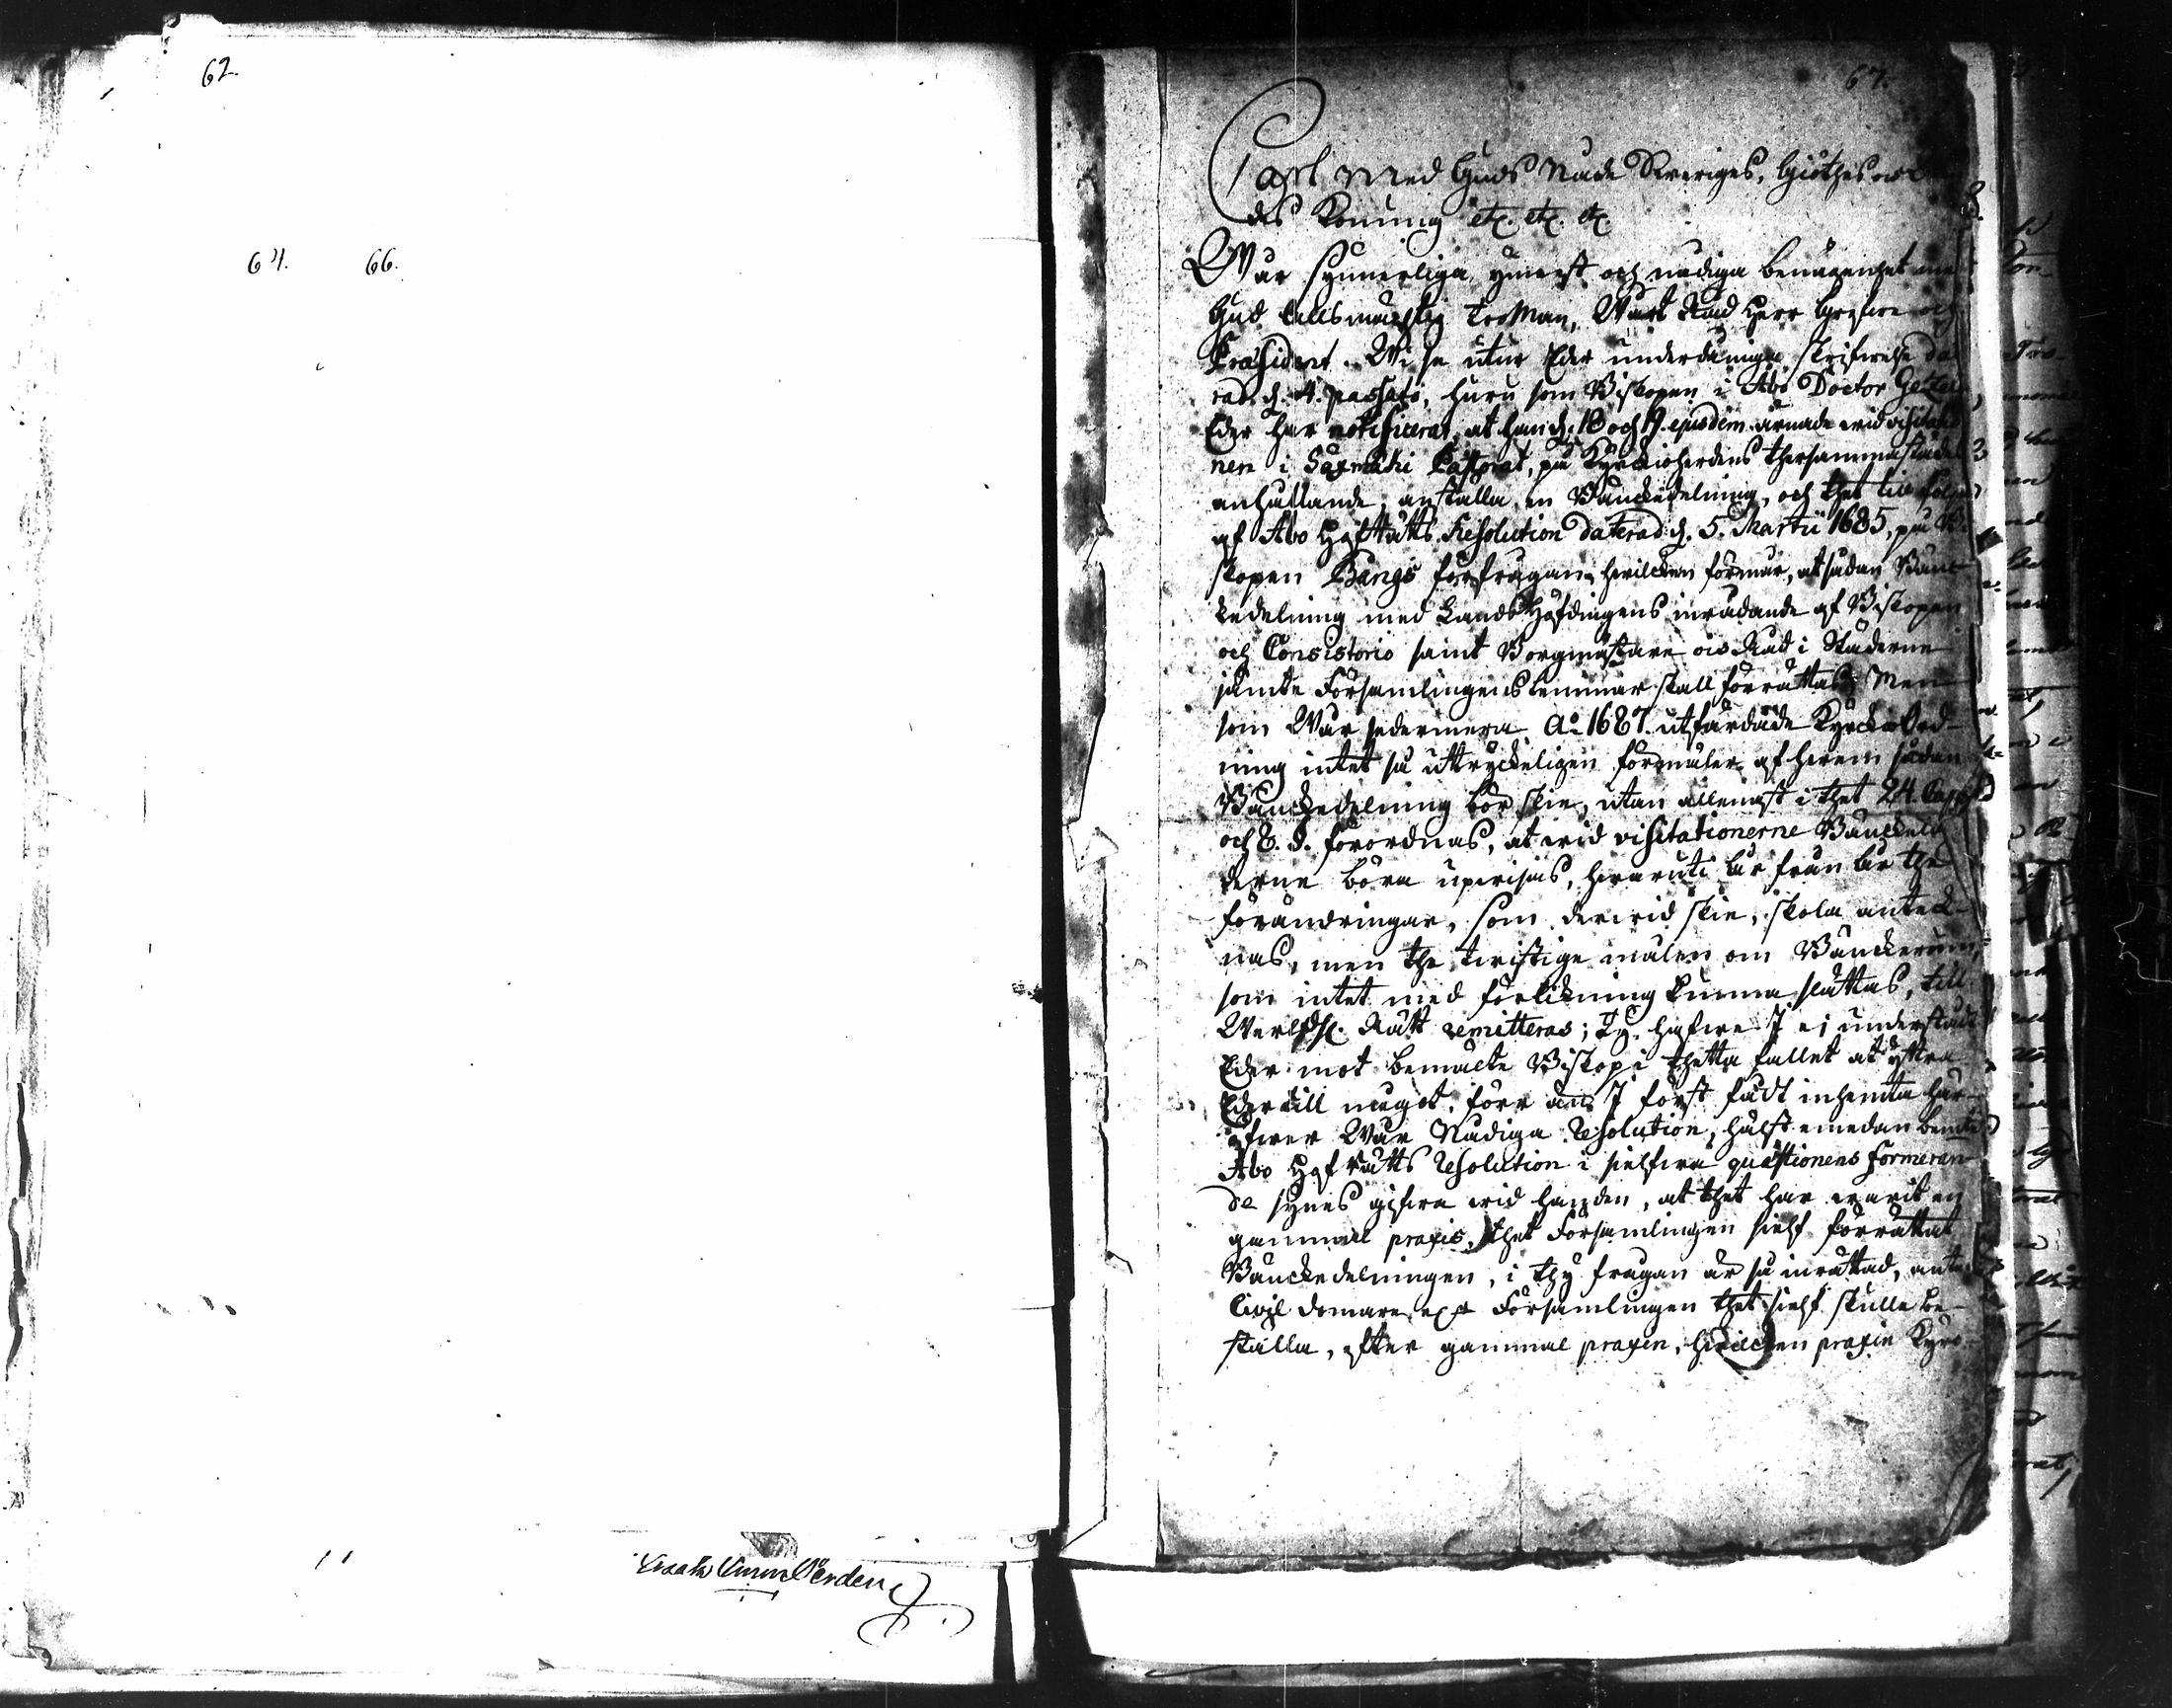 62.
64. 66.
Isaak
67.
Carl med Guds Nåde Sweriges, Giöthes och
des Konung etc. etc. etc.
Wår synnerliga ynnest och nådiga benägenhet med
Gud Allsmächtig troMan, Wårt Råd Herr Grefwe och
Præsident. Wi se utur Eder underdånige skrifwelse da-
rad. d. 4. passato, huru som Biskopen i Åbo Doctor Gezel
Eder har notificerat, at han d. 18 och 19. ejusdem ärnade wid visitatio
nen i Saxmäki Pastorat, på Kyrckioherdens thersammastädes
anhållande, anställa en Bänckedelning, och thet till följe
af Åbo HofRätts Resolution daterad d. 5. Martii 1685, på Bi
skopen Bångs förfrågan, hwilcken förmår, at sådan Bänc
kedelning med LandsHöfdingens inrådande af Biskopen
och Consistorio samt Borgmästare och Råd i Städerne
jämte Församlingens ledamöter skall förrättas; Men
som Wår sedermera Ao 1687. utfärdade KyrckioOrd-
ning intet så uttryckeligen förmäler af hwem sådan
Bänckedelning bör skie, utan allenast i thet 24. Cap:
och 8. §. förordnas, at wid visitationerne Bänckelä
derne böra upwisas, hwaruti åhr från åhr the
förändringar, som derwid skie, skola anteck-
nas, men the twistige målen om Bänckerum,
som intet med förlikning kunna slättas, till
Werldsl. Rätt remitteras; Ty hafwe I ei understådt
Eder mot bemälte Biskop i thetta fallet at yttra
Eder till något, förr än I först fådt inhemta här-
öfwer Wår Nådiga Resolution, hälst emedan bemte
Åbo HofRätts Resolution i sielfwa quæstionens formeran-
de synes gifwa wid handen, at thet har warit en
gammal praxis, thet Församlingen sielf förrättat
Bänckedelningen, i thy frågan är så inrättad, ante
Civil domare eller Församlingen thet sielf skulle be-
ställa, efter gammal praxin, hwilcken praxin Kyrc-